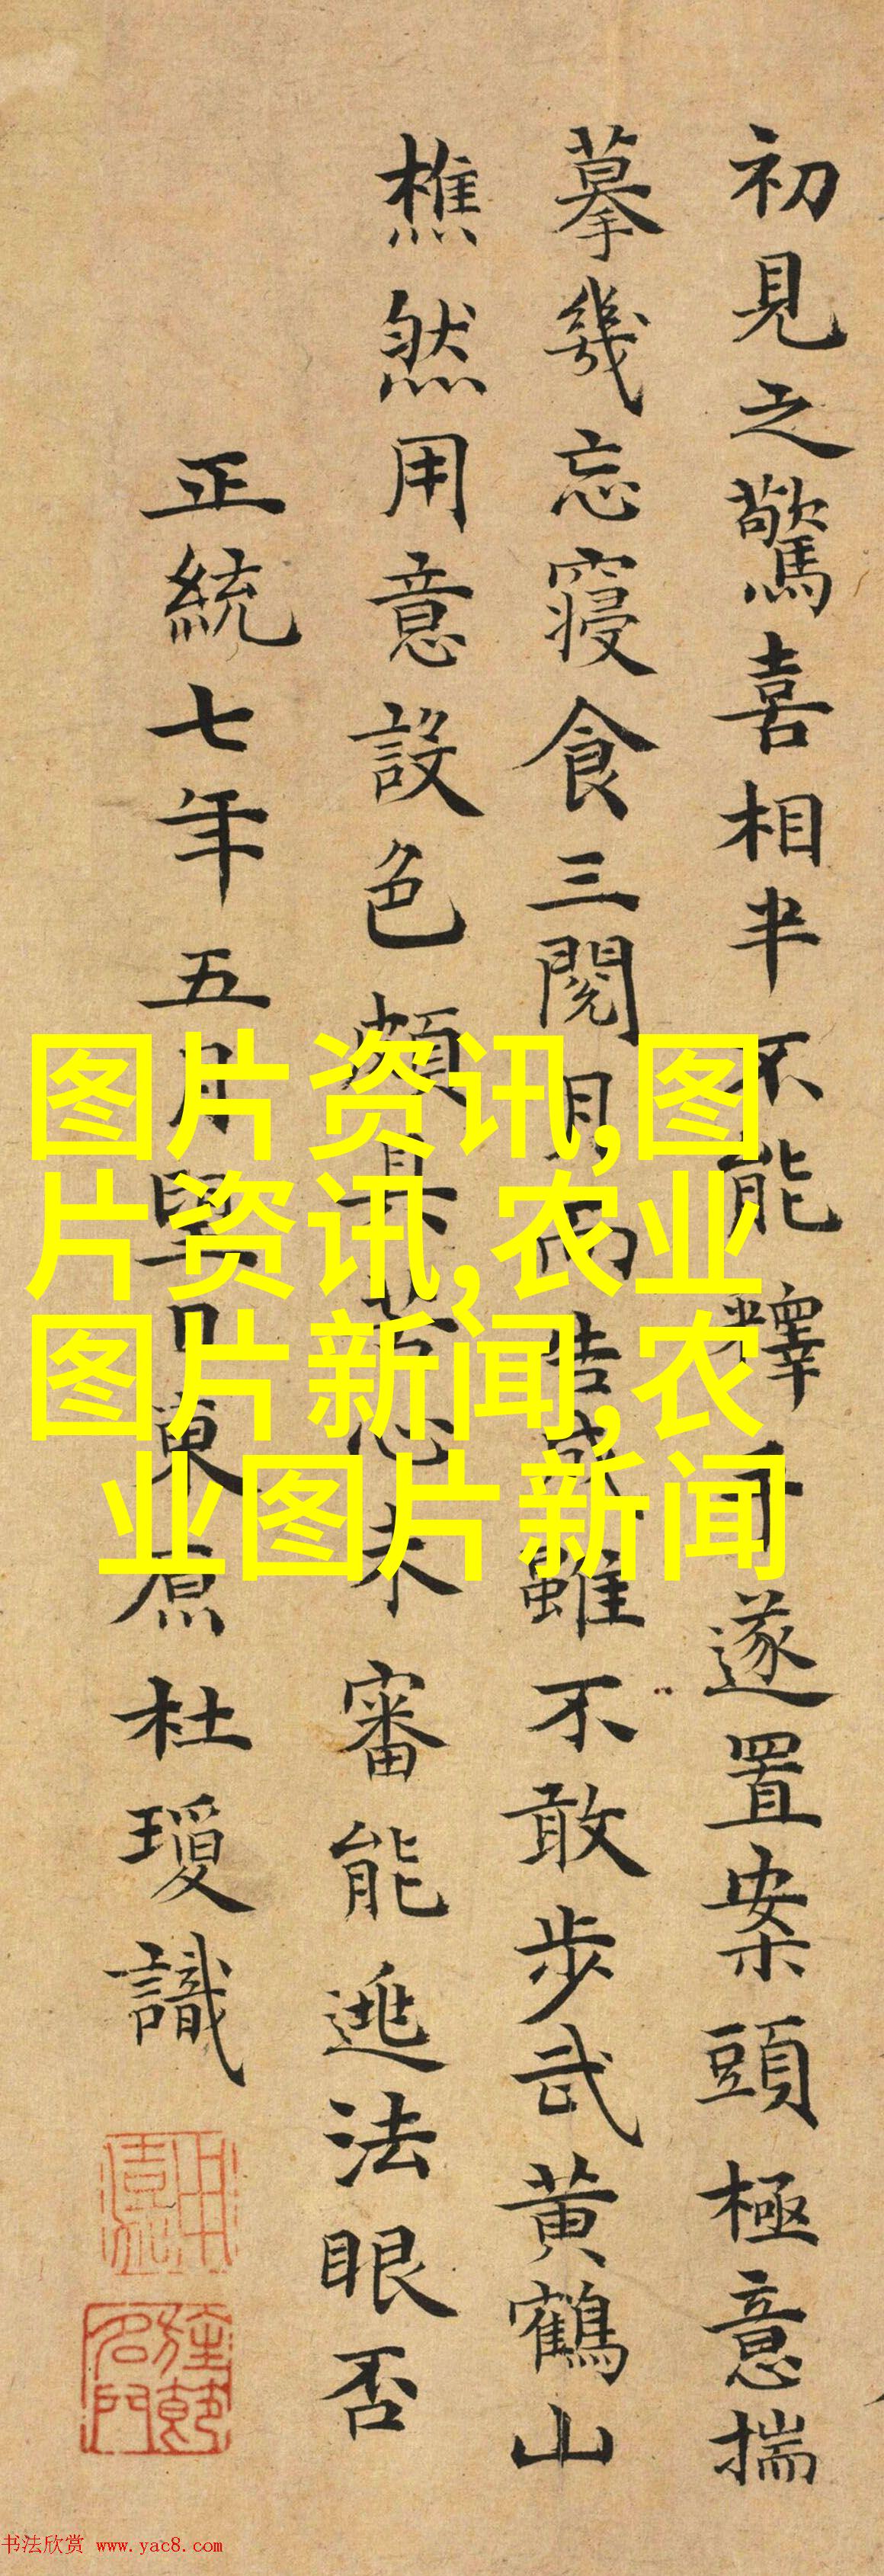 初見之驚喜相半不能釋手遂置案頭極意揣
摹幾忘寢食三閱月而告成雖不敢步武黃鶴山
樵然用意設色頗具苦心未審能逃法眼否
正統七年五月望日東原杜瓊識
图片资讯,图
片资讯,农业
图片新闻,农
业图片新闻
书法欣赏 www.yac8.com